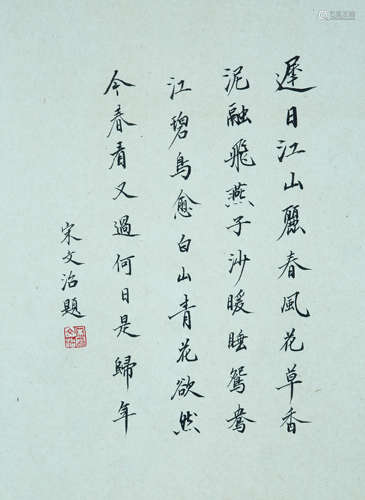 遲日江山麗春風花草香
泥融飛燕子沙暖睡鴛鴦
江碧鳥愈白山青花欲然
今春看又過何日是歸年
宋文治題